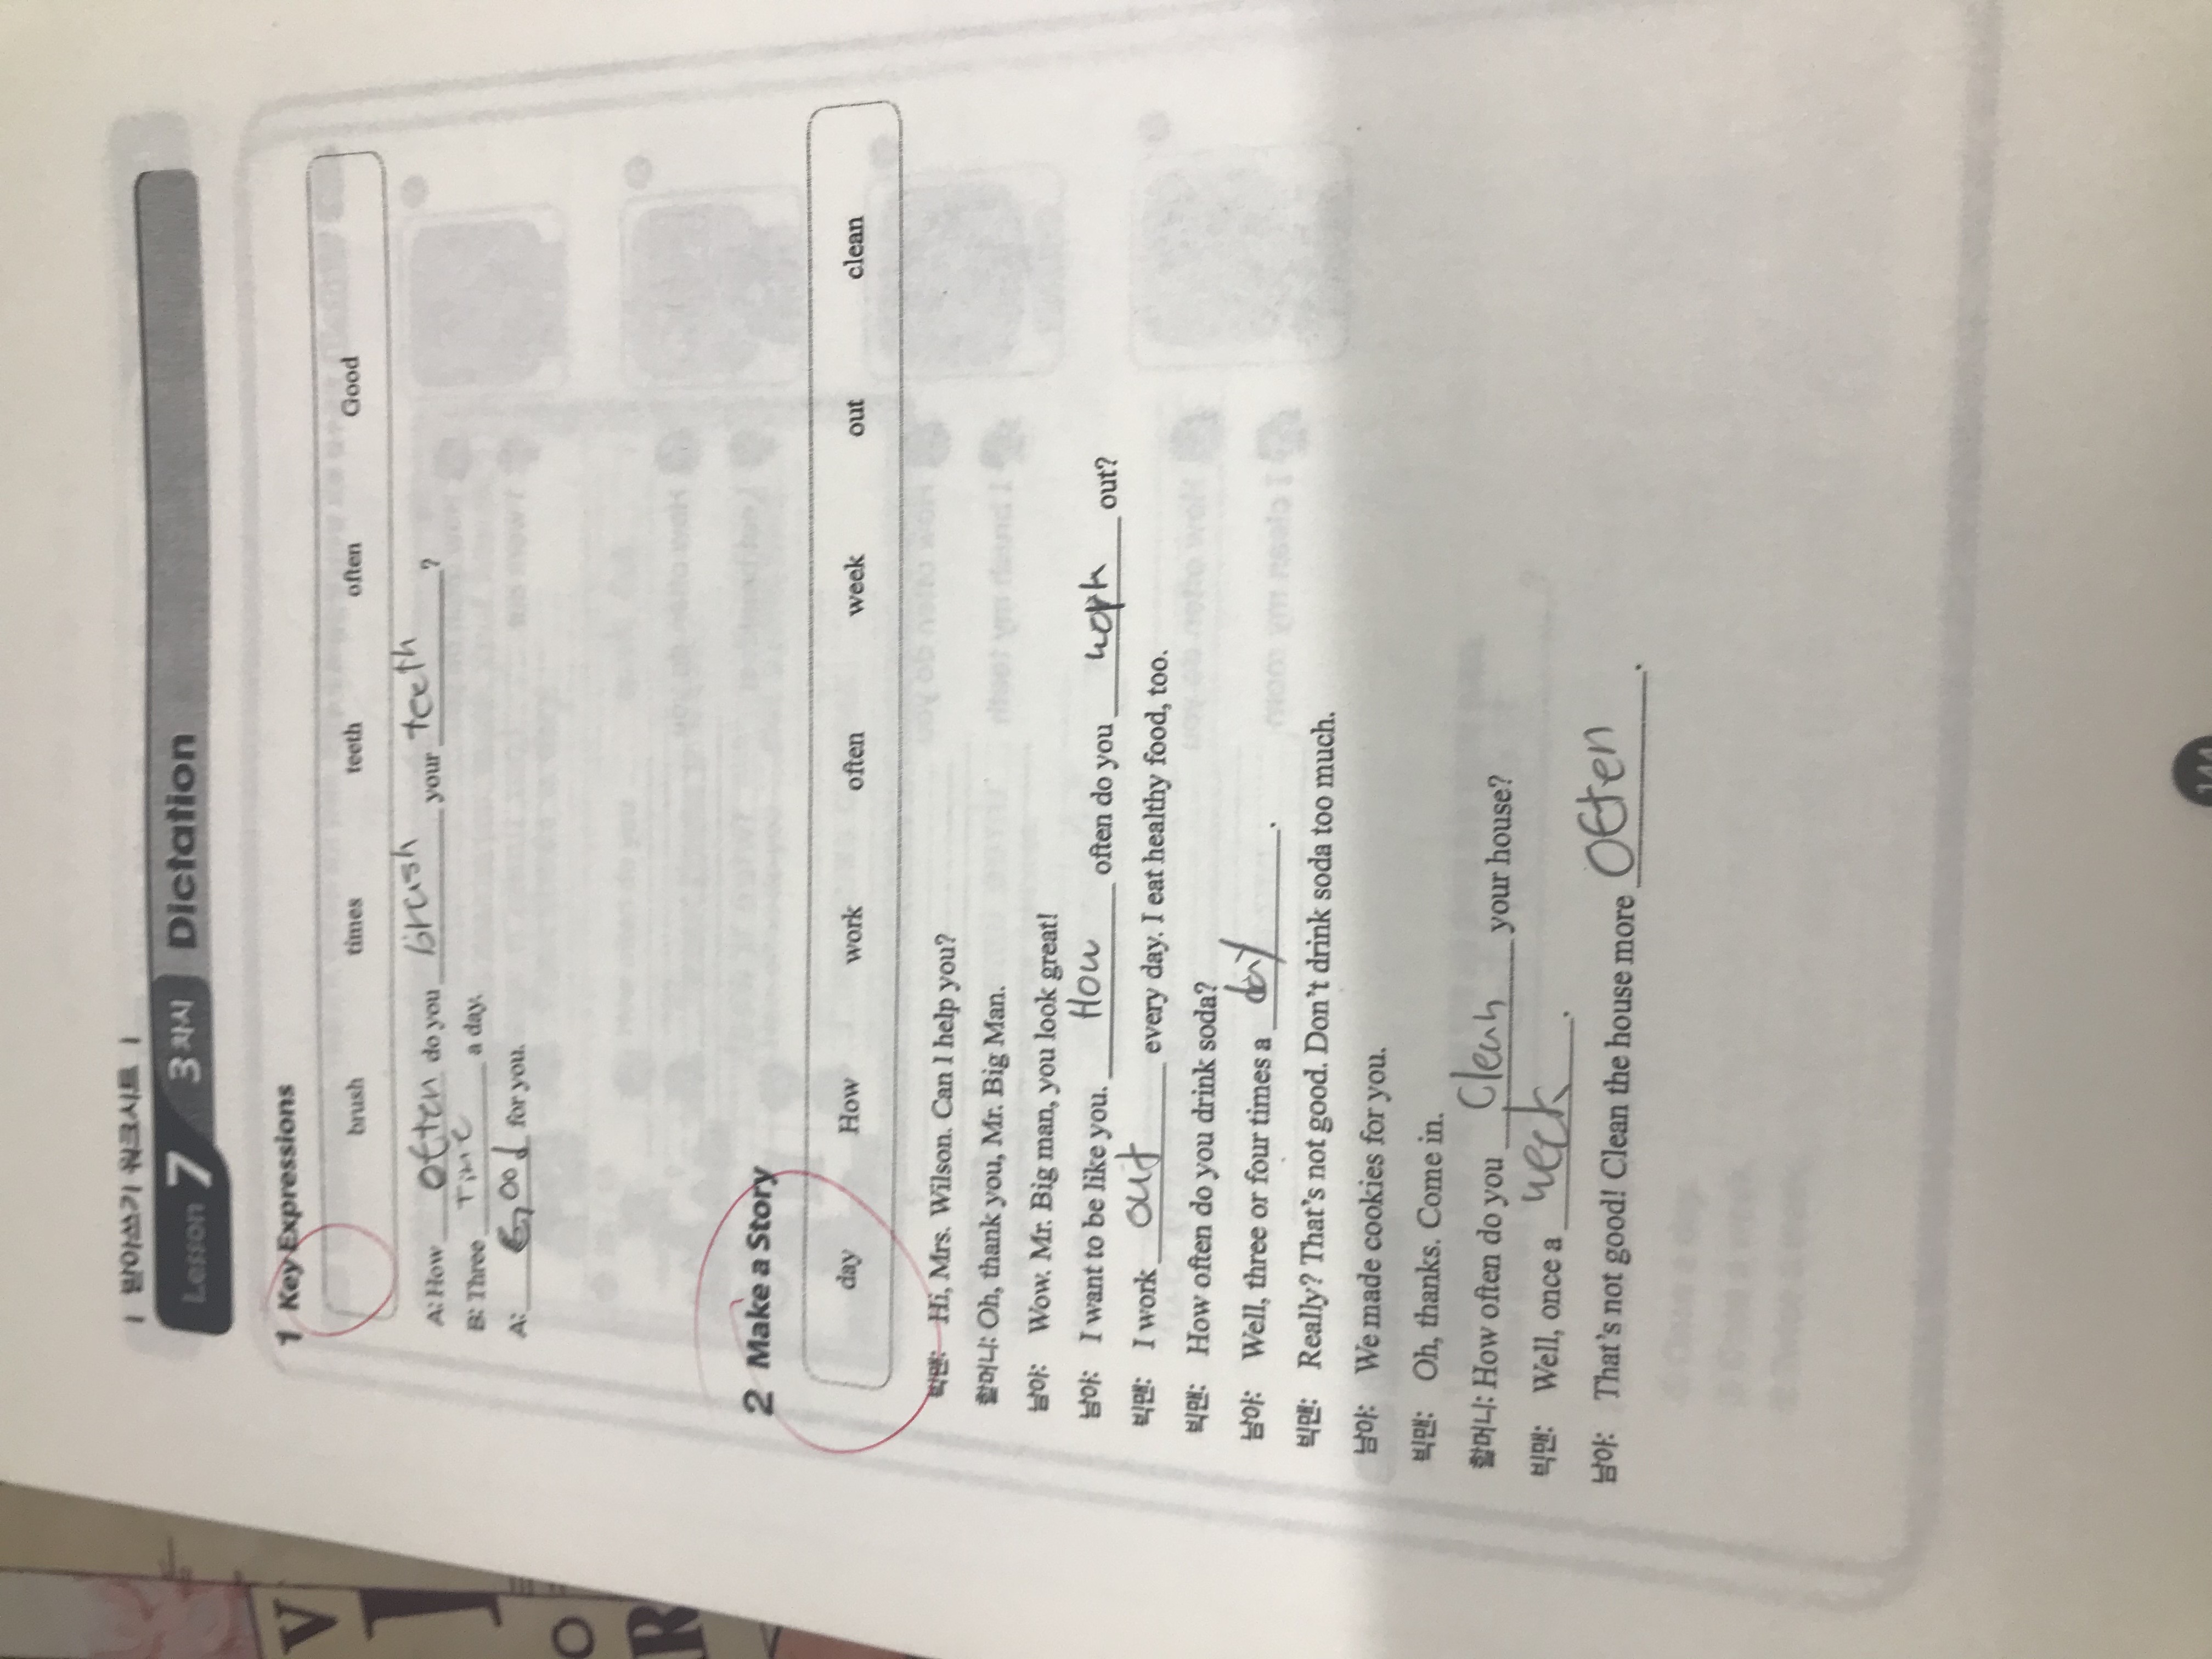 | 받아쓰기 워크시트 |
Lesson 7 3차시 Dictation
1 Key Expressions
brush times teeth often Good
A: How often do you brush your teeth ?
B: Three Time a day.
A: Good for you.
2 Make a Story
day How work often week out clean
빅맨: Hi, Mrs. Wilson. Can I help you?
할머니: Oh, thank you, Mr. Big Man.
남아: Wow. Mr. Big man, you look great!
남아: I want to be like you. How often do you work out?
빅맨: I work out every day. I eat healthy food, too.
빅맨: How often do you drink soda?
남아: Well, three or four times a day.
빅맨: Really? That's not good. Don't drink soda too much.
남아: We made cookies for you.
빅맨: Oh, thanks. Come in.
할머니: How often do you Clean your house?
빅맨: Well, once a week.
남아: That's not good! Clean the house more Often.
144
V
O
R